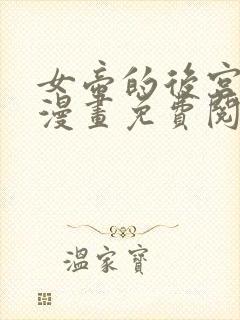 女帝的後宮
漫畫免費閱
溫家寶